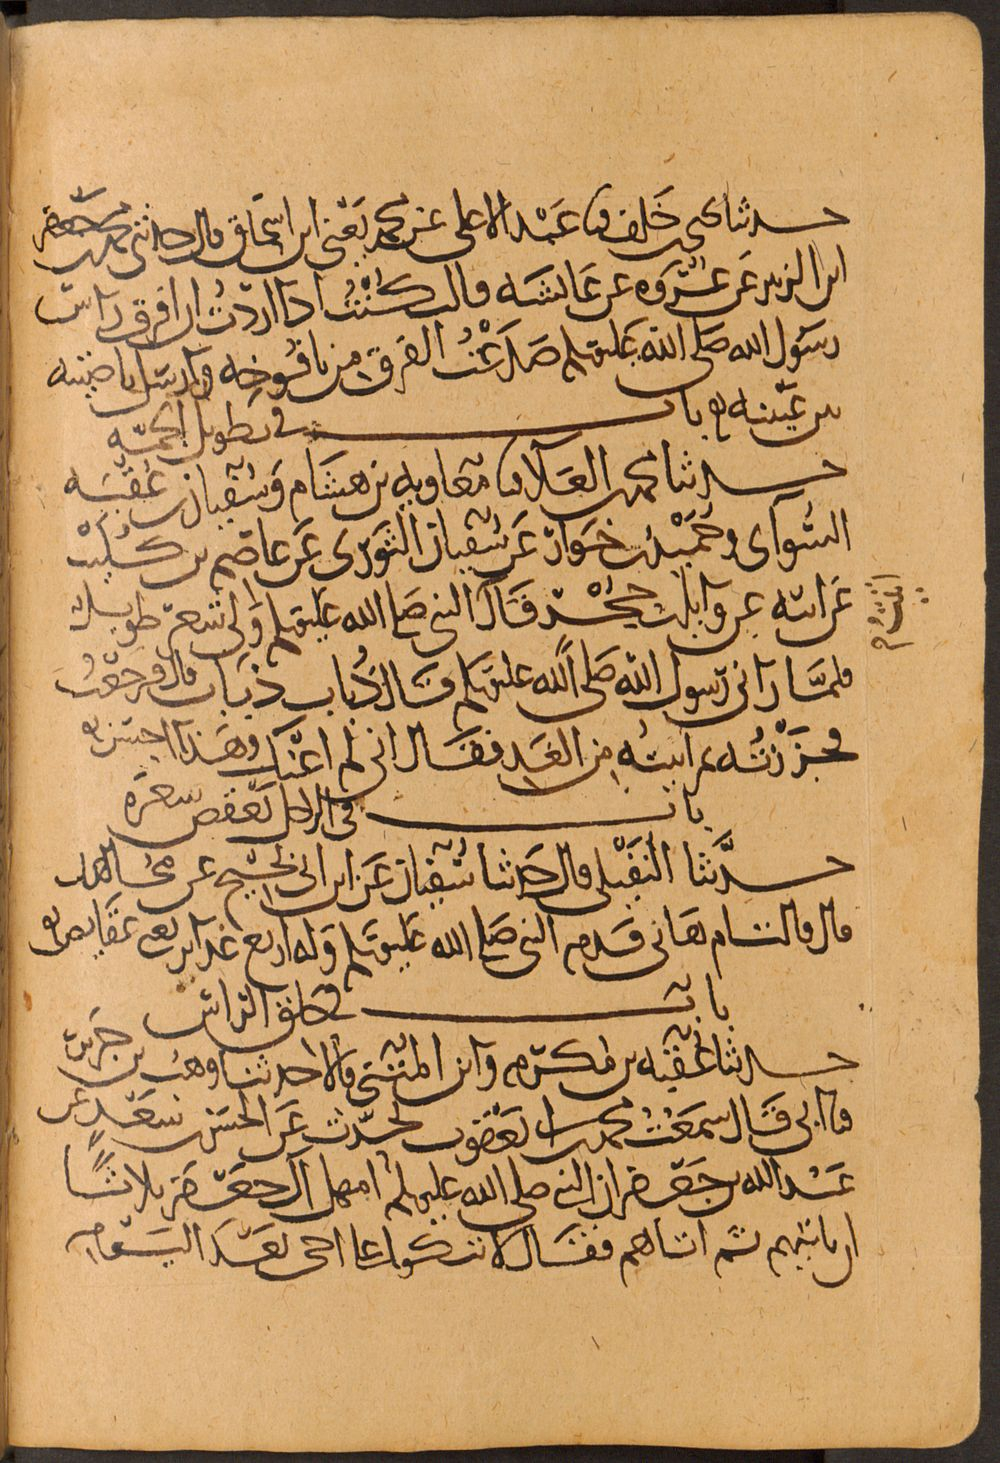 حدثنا يحيى بن خلف نا عبد الاعلى عن محمد يعني ابن اسحاق قال حدثني محمد بن جعفر
ابن الزبير عن عروه عن عائشه قالت كنت اذا اردت ان افرق راس
رسول الله صلى الله عليه وسلم صدعت الفرق من يافوخه وارسل ناصيته
بين عينيه باب في تطويل الجمه
حدثنا محمد بن العلا نا معاويه بن هشام وسفيان بن عقبه
السوآى وحميد بن خوار عن سفيان الثورى عن عاصم بن كليب
عن ابيه عن وايل بن حجر قال اتيت النبي صلى الله عليه وسلم ولى شعر طويل
فلما رآنى رسول الله صلى الله عليه وسلم قال ذباب ذباب قال فرجعت
فجززته ثم اتيته من الغد فقال انى لم اعنك وهذا احسن
باب في الرجل يعقص شعره
حدثنا النفيلى قال حدثنا سفيان عن ابن ابى نجيح عن مجاهد
قال قالت ام هانى قدم النبي صلى الله عليه وسلم وله اربع غدائر يعني عقايص
باب في حلق الراس
حدثنا عقبه بن مكرم وابن المثنى قالا حدثنا وهب بن جرير
نا ابى قال سمعت محمد بن ابى يعقوب يحدث عن الحسن بن سعد عن
عبد الله بن جعفر ان النبي صلى الله عليه وسلم امهل آل جعفر ثلاثا
ان ياتيهم ثم اتاهم فقال لا تبكوا على اخى بعد اليوم